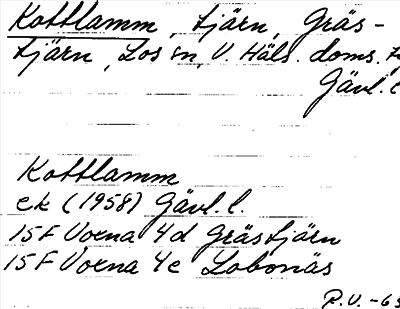 Kottlamm, tjärn, Gräs-
tjärn, Los sn, V. Häls. doms.
Gävl.
Kottlamm
ek (1958) Gävl. l.
15F Voxna 4d Grästjärn
15F Voxna 4e Lobonäs
R.V. -65